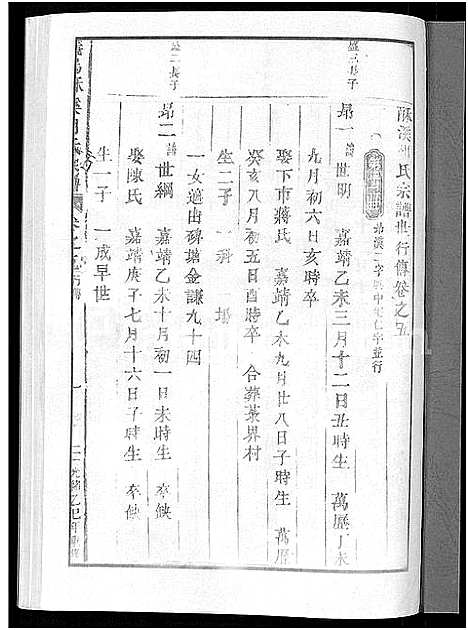 酥溪 氏宗譜世行傳卷之五
盛三長子
昻一 諱世明 嘉靖乙未三月十二日丑時生 萬歷丁未
九月初六日亥時卒
娶下市蔣氏 嘉靖乙未九月廿八日子時生 萬歷
癸亥八月初五日酉時卒 合葬茶界村
生二子 一科 一場
一女適由碑塘金謙九十四
盛二長子
昻二 諱世綱 嘉靖乙未十月初一日未時生 卒缺
娶陳氏 嘉靖庚子七月十六日子時生 卒缺
生一子 一成早世
光緒乙巳年重修